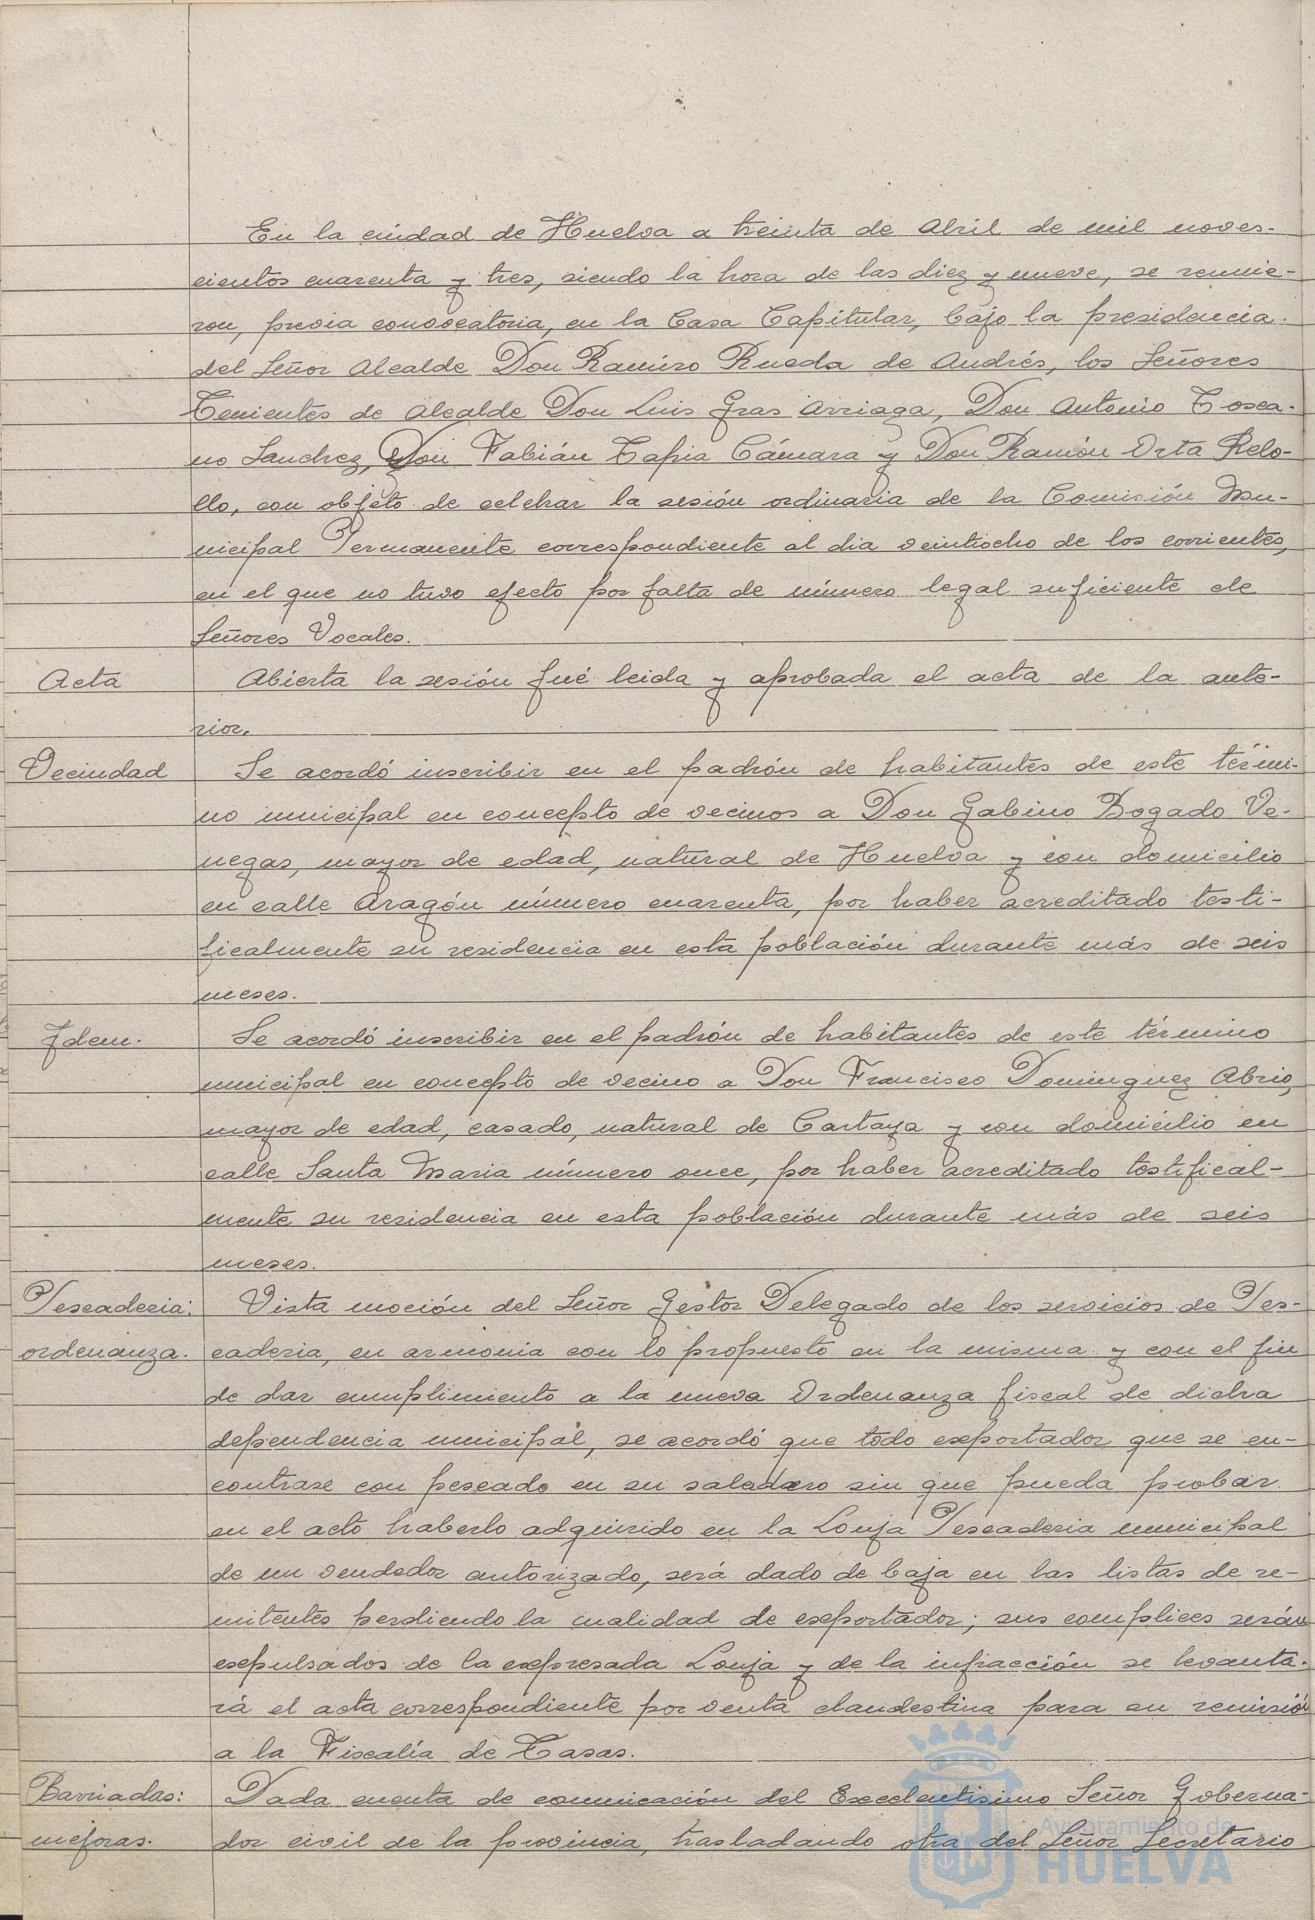 En la ciudad de Huelva a treinta de Abril de mil noves-
cientos cuarenta y tres, siendo la hora de las diez y nueve, se reunie-
ron, previa convocatoria, en la Casa Capitular, bajo la presidencia
del Señor Alcalde Don Ramiro Rueda de Andrés, los Señores
Tenientes de Alcalde Don Luis Gras Arriaga, Don Antonio Tosca-
no Sanchez, Don Fabián Tapia Cámara y Don Ramón Orta Rebo-
llo, con objeto de celebrar la sesión ordinaria de la Comisión Mu-
nicipal Permanente correspondiente al dia veintiocho de los corrientes,
en el que no tuvo efecto por falta de número legal suficiente de
Señores Vocales.
Acta Abierta la sesión fué leida y aprobada el acta de la ante-
rior.
Vecindad Se acordó inscribir en el padrón de habitantes de este térmi-
no municipal en concepto de vecinos a Don Gabino Bogado Ve-
negas, mayor de edad, natural de Huelva y con domicilio
en calle Aragón número cuarenta, por haber acreditado testi-
ficalmente su residencia en esta población durante más de seis
meses.
Idem. Se acordó inscribir en el padrón de habitantes de este término
municipal en concepto de vecino a Don Francisco Dominguez Abrio,
mayor de edad, casado, natural de Cartaya y con domicilio en
calle Santa Maria número once, por haber acreditado testifical-
mente su residencia en esta población durante más de seis
meses.
Pescaderia: Vista moción del Señor Gestor Delegado de los servicios de Pes-
ordenanza. caderia, en armonia con lo propuesto en la misma y con el fin
de dar cumplimiento a la nueva Ordenanza fiscal de dicha
dependencia municipal, se acordó que todo exportador que se en-
contrase con pescado en su saladero sin que pueda probar
en el acto haberlo adquirido en la Lonja Pescaderia municipal
de un vendedor autorizado, será dado de baja en las listas de re-
mitentes perdiendo la cualidad de exportador; sus complices serán
expulsados de la expresada Lonja y de la infracción se levanta-
rá el acta correspondiente por venta clandestina para su remisión
a la Fiscalía de Tasas.
Barriadas: Dada cuenta de comunicación del Excelentisimo Señor Goberna-
mejoras. dor civil de la provincia, trasladando otra del Señor Secretario
Ayuntamiento de
HUELVA